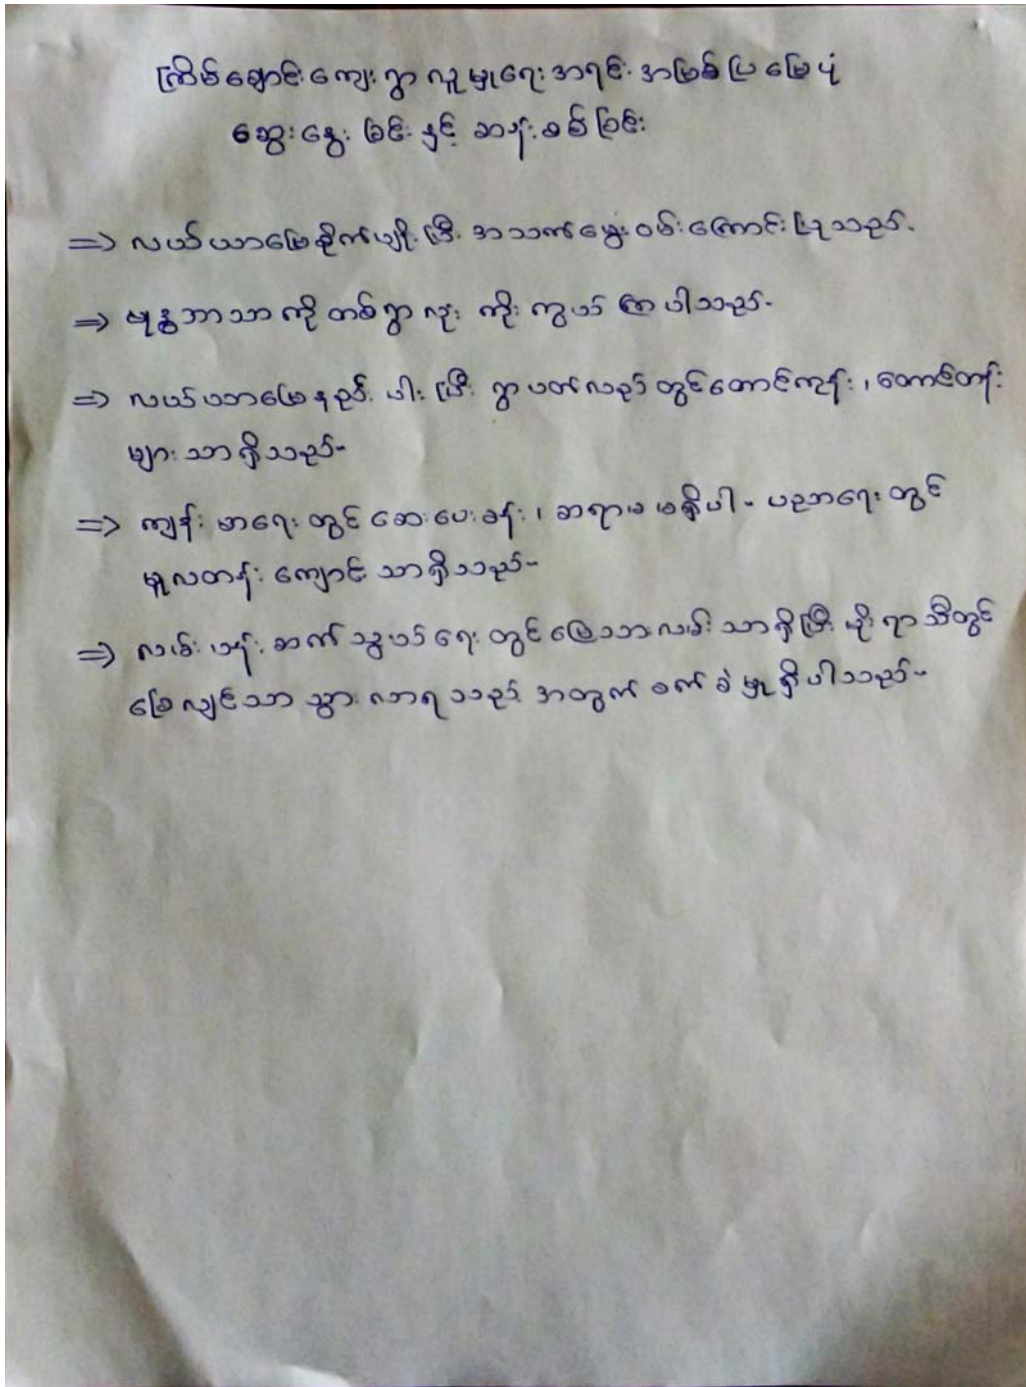 ကြိမ်ချောင်းကျေးရွာ လူမှုရေးအရင်းအမြစ်ပြမြေပုံ
ဆွေးနွေးခြင်းနှင့် ဆန်းစစ်ခြင်း
⇒ လယ်ယာမြေစိုက်ပျိုးပြီး အသက်မွေးဝမ်းကြောင်းပြုသည်.
⇒ ဗုဒ္ဓဘာသာကို တစ်ရွာလုံး ကိုးကွယ်ကြပါသည်-
⇒ လယ်ယာမြေနည်းပါးပြီး ရွာပတ်လည်တွင်တောင်ကုန်း ၊ တောင်တန်း
များသာရှိသည်-
⇒ ကျန်းမာရေးတွင် ဆေးပေးခန်း ၊ ဆရာမ မရှိပါ - ပညာရေးတွင်
မူလတန်းကျောင်းသာရှိသည်-
⇒ လမ်းပန်းဆက်သွယ်ရေးတွင် မြေသားလမ်းသာရှိပြီး မိုးရာသီတွင်
ခြေလျင်သာ သွားလာရသည့် အတွက် ခက်ခဲမှုရှိပါသည်-